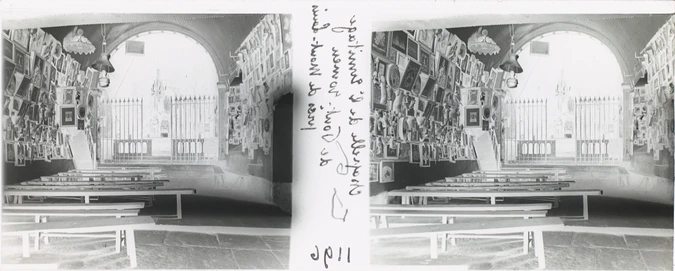 Chapelle de l'Ermitage
de Font-Romeu
Mont-Louis
1196